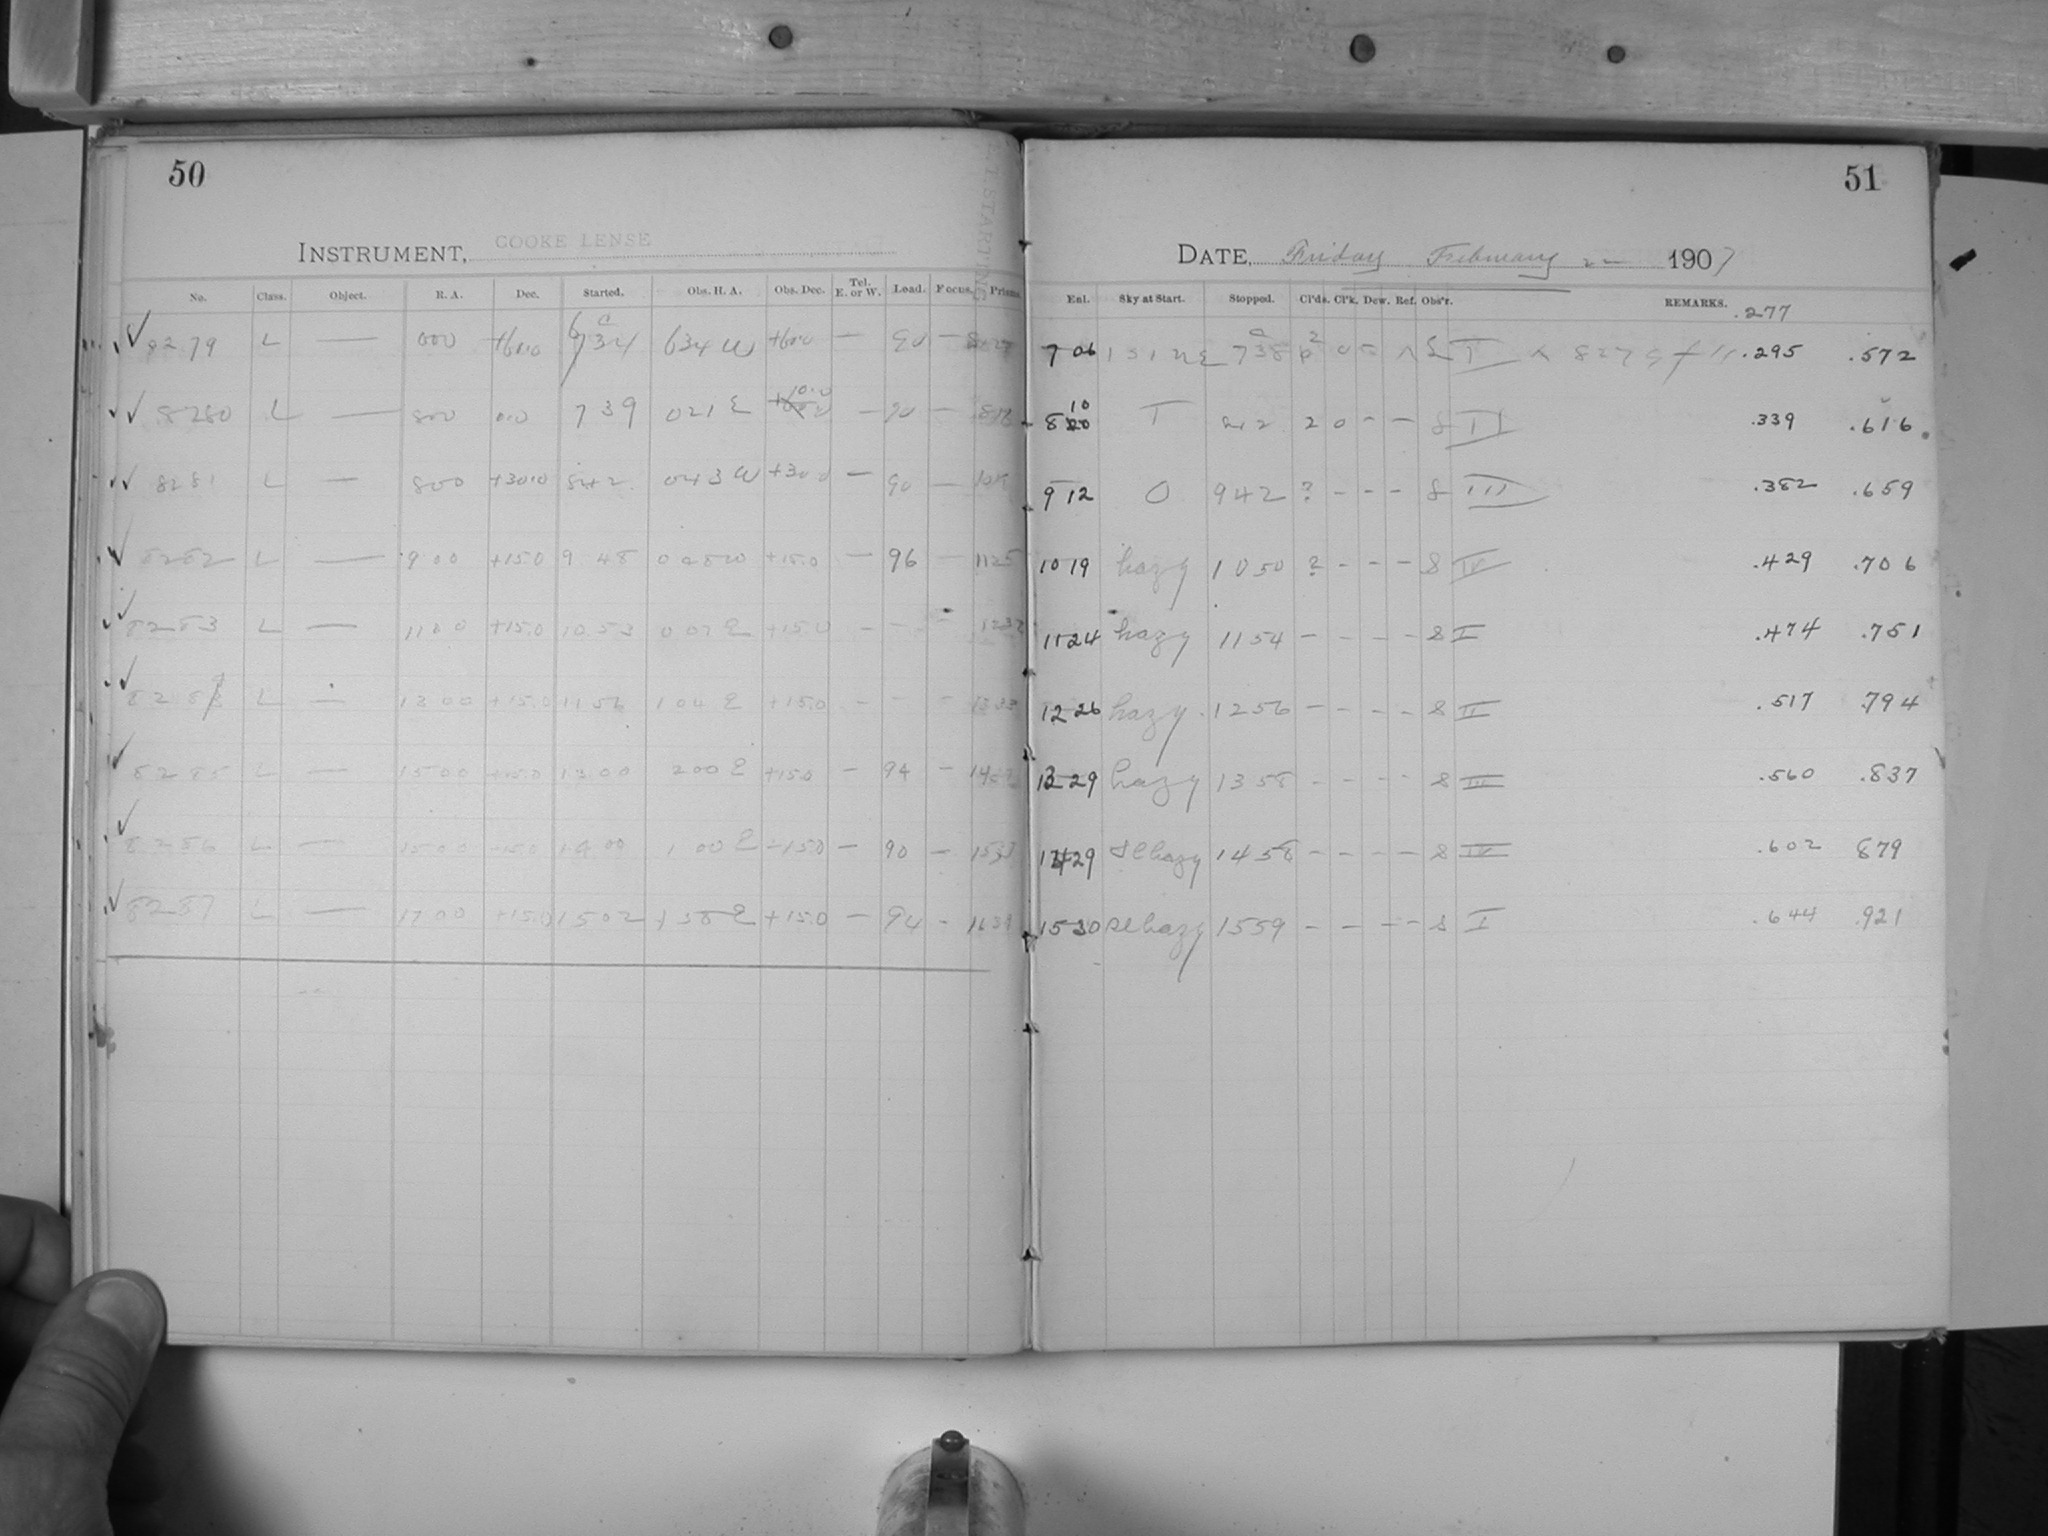 50
INSTRUMENT, COOKE LENSE
No. Class. Object. R. A. Dec. Started. Obs. H. A. Obs. Dec. Tel. E. or W. Load. Focus. Prisms.
8279 L — 000 +60.0 634 W +60.0 — 90 —
8280 L — 800 0.0 739 021 E 10.0 — 90 —
8281 L — 800 +30.0 842 043 W +30.0 — 90 —
8282 L — 9 00 +15.0 9 48 +15.0 — 96 — 1125
8283 L — 1100 +15.0 10 53 007 E +15.0 - - - 1232
8284 L — 13 00 +15.0 11 56 104 E +15.0 - - -
8285 L — 15 00 +15.0 13 00 200 E +15.0 — 94 -
8286 L — 15 00 +15.0 14 00 1 00 E +15.0 — 90 —
8287 L — 17 00 +15.0 15 02 1 58 E +15.0 — 94 -
51
DATE, Friday February 22 1907
Enl. Sky at Start. Stopped. Cl'ds. Cl'k. Dew. Ref. Obs'r. REMARKS. .277
7 06 738 I .295 .572
8 10 2 0 - - S II .339 .616
9 12 0 942 ? - - - S III .382 .659
10 19 hazy 10 50 ? - - - S IV .429 .706
11 24 hazy 11 54 - - - - S I .474 .751
12 26 hazy 12 56 - - - - S II .517 .794
13 29 hazy 13 58 - - - - S III .560 .837
14 29 sl hazy 14 58 - - - - S IV .602 879
15 30 sl hazy 15 59 - - - - S I .644 .921